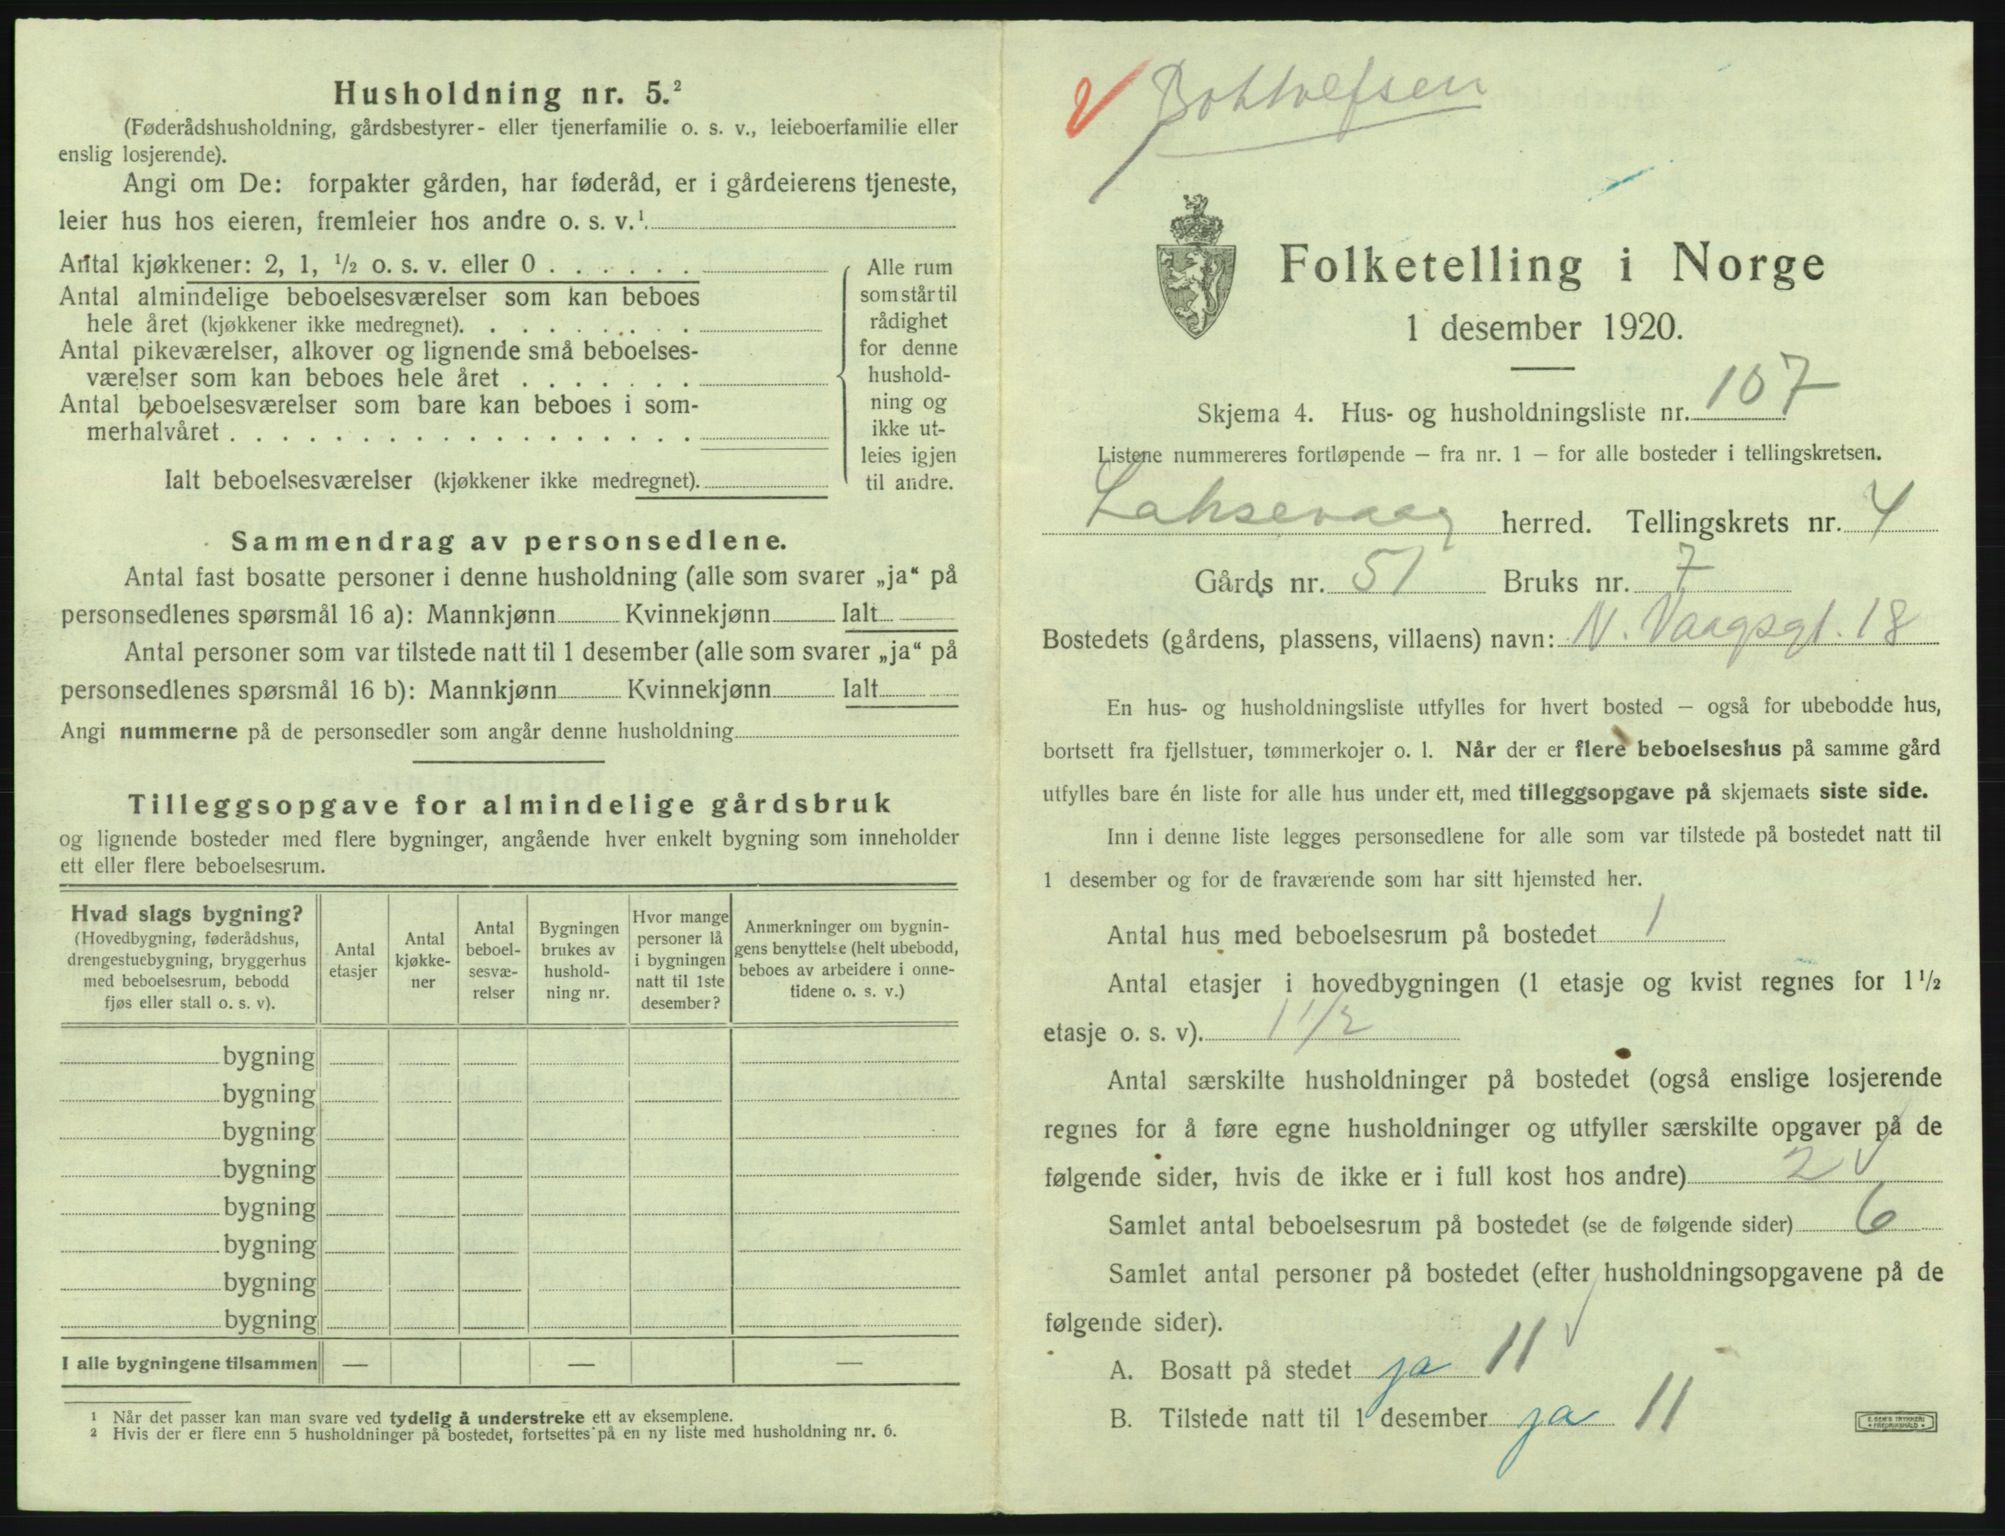 Husholdning nr. 5.²
(Føderådshusholdning, gårdsbestyrer- eller tjenerfamilie o. s. v., leieboerfamilie eller
enslig losjerende).
Angi om De: forpakter gården, har føderåd, er i gårdeierens tjeneste,
leier hus hos eieren, fremleier hos andre o. s. v.¹
Antal kjøkkener: 2, 1, ½ o. s. v. eller 0
Antal almindelige beboelsesværelser som kan beboes
hele året (kjøkkener ikke medregnet)
Antal pikeværelser, alkover og lignende små beboelses-
værelser som kan beboes hele året
Antal beboelsesværelser som bare kan beboes i som-
merhalvåret
Ialt beboelsesværelser (kjøkkener ikke medregnet)
Alle rum
som står til
rådighet
for denne
hushold-
ning og
ikke ut-
leies igjen
til andre.
Sammendrag av personsedlene.
Antal fast bosatte personer i denne husholdning (alle som svarer „ja“ på
personsedlenes spørsmål 16 a): Mannkjønn Kvinnekjønn Ialt
Antal personer som var tilstede natt til 1 desember (alle som svarer „ja“ på
personsedlenes spørsmål 16 b): Mannkjønn Kvinnekjønn Ialt
Angi nummerne på de personsedler som angår denne husholdning
Tilleggsopgave for almindelige gårdsbruk
og lignende bosteder med flere bygninger, angående hver enkelt bygning som inneholder
ett eller flere beboelsesrum.
Hvad slags bygning?
(Hovedbygning, føderådshus,
drengestuebygning, bryggerhus
med beboelsesrum, bebodd
fjøs eller stall o. s. v).
Antal
etasjer
Antal
kjøkke-
ner
Antal
beboel-
sesvæ-
relser
Bygningen
brukes av
hushold-
ning nr.
Hvor mange
personer lå
i bygningen
natt til 1ste
desember?
Anmerkninger om bygnin-
gens benyttelse (helt ubebodd,
beboes av arbeidere i onne-
tidene o. s. v.)
bygning
bygning
bygning
bygning
bygning
bygning
bygning
bygning
I alle bygningene tilsammen — — —
¹ Når det passer kan man svare ved tydelig å understreke ett av eksemplene.
² Hvis der er flere enn 5 husholdninger på bostedet, fortsettes på en ny liste med husholdning nr. 6.
Folketelling i Norge
1 desember 1920.
Skjema 4. Hus- og husholdningsliste nr. 107
Listene nummereres fortløpende – fra nr. 1 – for alle bosteder i tellingskretsen.
Laksevaag herred. Tellingskrets nr. 4
Gårds nr. 51 Bruks nr. 7
Bostedets (gårdens, plassens, villaens) navn: N. Vaagsgt. 18
En hus- og husholdningsliste utfylles for hvert bosted – også for ubebodde hus,
bortsett fra fjellstuer, tømmerkojer o. l. Når der er flere beboelseshus på samme gård
utfylles bare én liste for alle hus under ett, med tilleggsopgave på skjemaets siste side.
Inn i denne liste legges personsedlene for alle som var tilstede på bostedet natt til
1 desember og for de fraværende som har sitt hjemsted her.
Antal hus med beboelsesrum på bostedet 1
Antal etasjer i hovedbygningen (1 etasje og kvist regnes for 1½
etasje o. s. v). 1 1/2
Antal særskilte husholdninger på bostedet (også enslige losjerende
regnes for å føre egne husholdninger og utfyller særskilte opgaver på de
følgende sider, hvis de ikke er i full kost hos andre) 2
Samlet antal beboelsesrum på bostedet (se de følgende sider) 6
Samlet antal personer på bostedet (efter husholdningsopgavene på de
følgende sider).
A. Bosatt på stedet ja 11
B. Tilstede natt til 1 desember ja 11